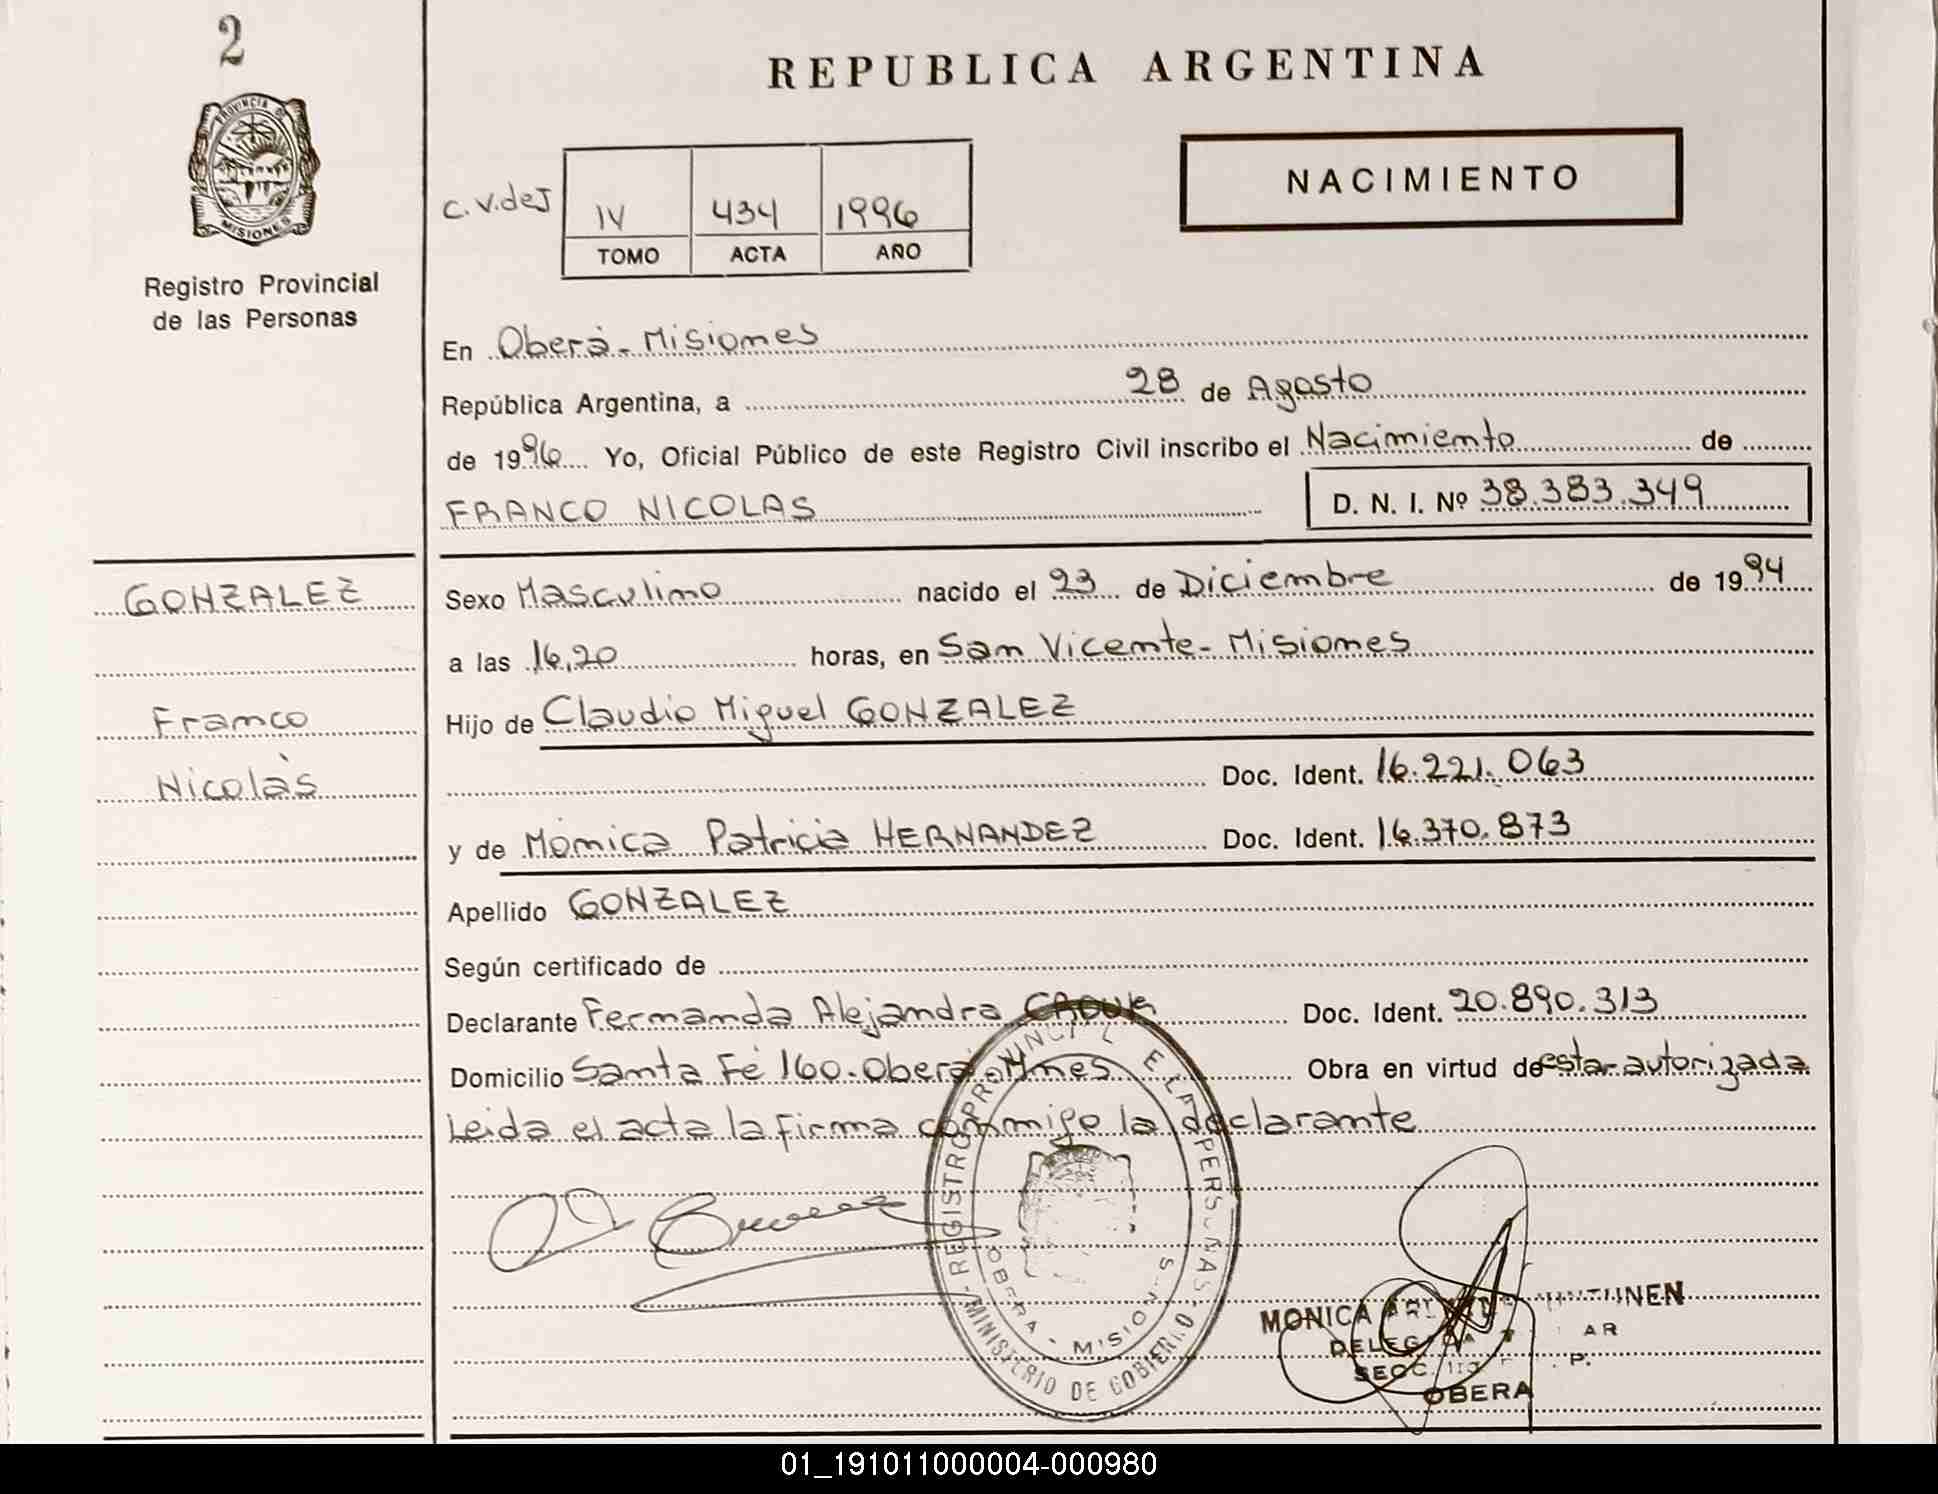 2
PROVINCIA DE
MISIONES
Registro Provincial
de las Personas
REPUBLICA ARGENTINA
C.V.deJ
IV 434 1996
TOMO ACTA AÑO
NACIMIENTO
En Oberá-Misiones
República Argentina, a 28 de Agosto
de 1996 Yo, Oficial Público de este Registro Civil inscribo el Nacimiento de
FRANCO NICOLAS D. N. I. Nº 38.383.349
GONZALEZ
Franco
Nicolàs
Sexo Masculino nacido el 23 de Diciembre de 1994
a las 16,20 horas, en San Vicente-Misiones
Hijo de Claudio Miguel GONZALEZ
Doc. Ident. 16.221.063
y de Mónica Patricia HERNANDEZ Doc. Ident. 16.370.873
Apellido GONZALEZ
Según certificado de
Declarante Fernanda Alejandra Doc. Ident. 20.890.313
Domicilio Santa Fé 160-Oberá-Mnes Obra en virtud de estar autorizada
Leida el acta la firma conmigo la declarante
REGISTRO PROVINCIAL DE LAS PERSONAS
MINISTERIO DE GOBIERNO
OBERA - MISIONES
MONICA
SECC.
OBERA
01_191011000004-000980